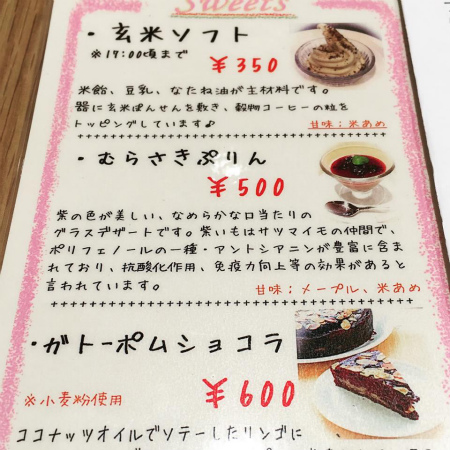 Sweets
・玄米ソフト
※17:00頃まで
¥350
米飴、豆乳、なたね油が主材料です。
器に玄米ぽんせんを敷き、穀物コーヒーの粒を
トッピングしています♪
甘味：米あめ
・むらさきぷりん
¥500
紫の色が美しい、なめらかな口当たりの
グラスデザートです。紫いもはサツマイモの仲間で、
ポリフェノールの一種・アントシアニンが豊富に含ま
れており、抗酸化作用、免疫力向上等の効果があると
言われています。
甘味：メープル、米あめ
・ガトーポムショコラ
※小麦粉使用
¥600
ココナッツオイルでソテーしたリンゴに